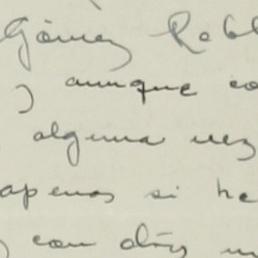 Gómez Robl
) aunque co
alguna vez
apenas si he
con dós